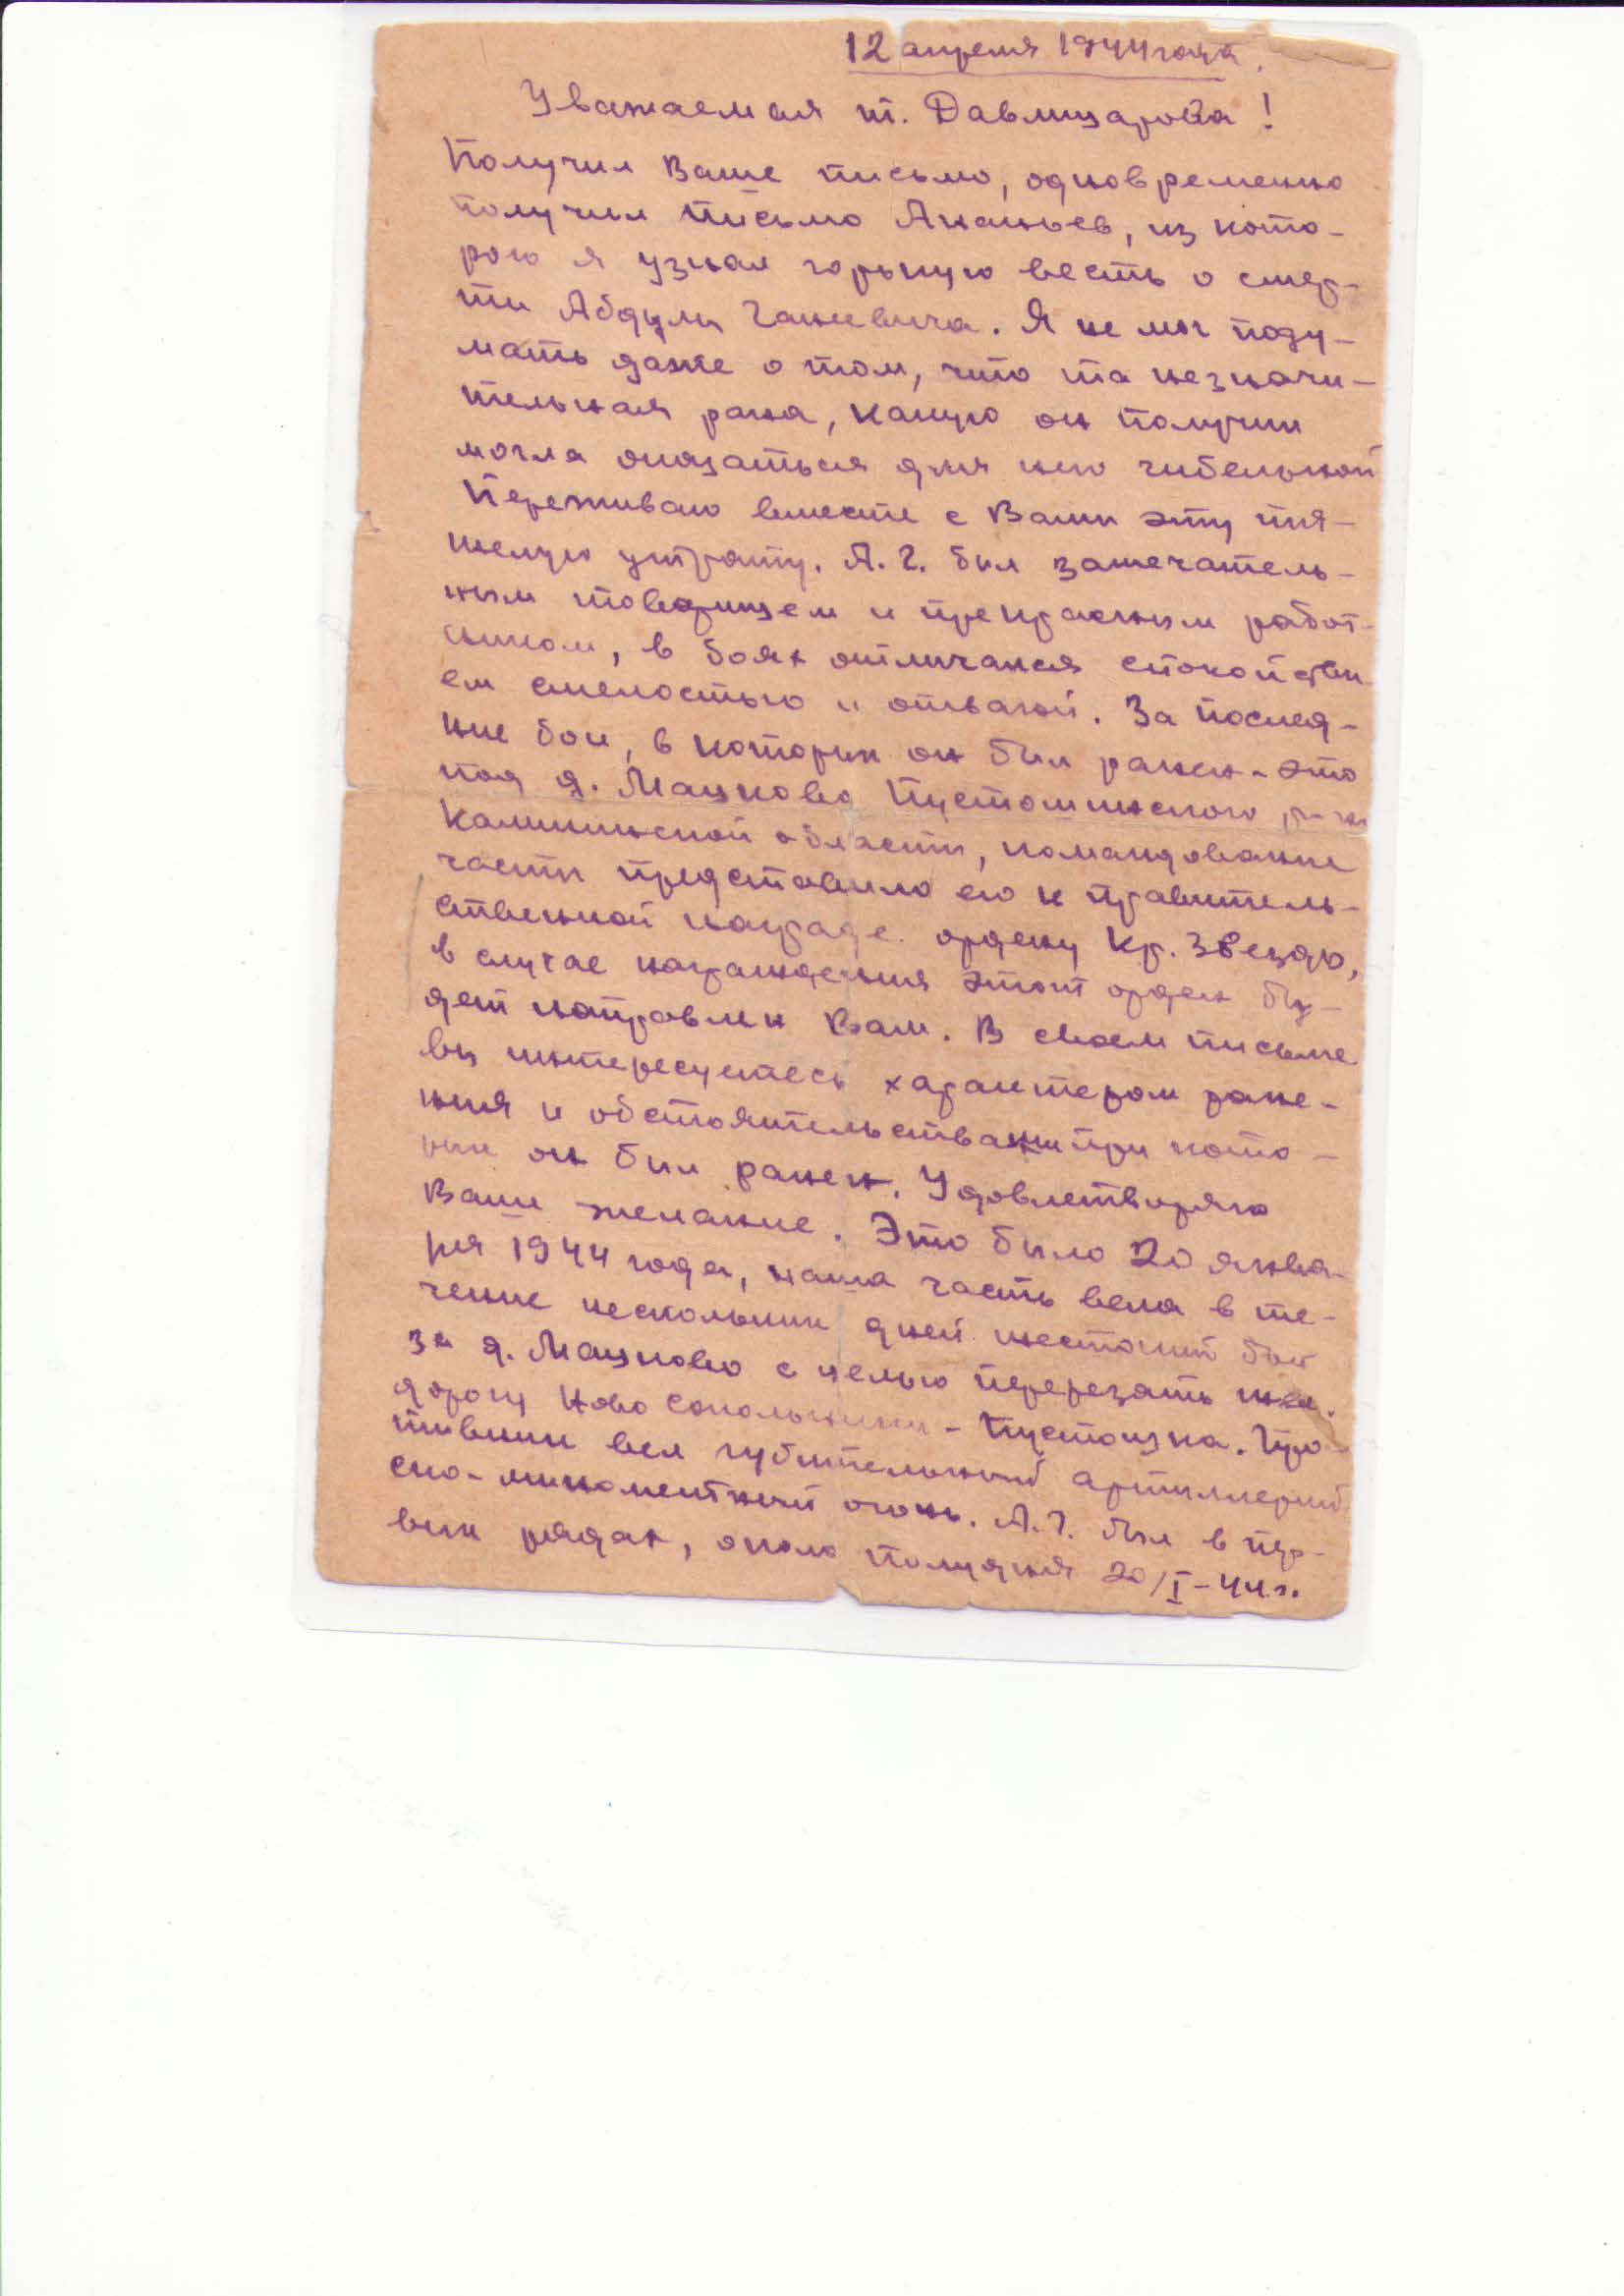 12 апреля 1944 года.
Уважаемая т. Давлизарова!
Получил Ваше письмо, одновременно
получил письмо Ананьев, из кото-
рого я узнал горькую весть о смер-
ти Абдулы Ганиевича. Я не мог поду-
мать даже о том, что та незначи-
тельная рана, какую он получил
могла оказаться для него гибельной
Переживаю вместе с Вами эту тя-
желую утрату. А. Г. был замечатель-
ным товарищем и прекрасным работ-
ником, в боях отличался спокойстви-
ем смелостью и отвагой. За послед-
ние бои, в которых он был ранен - это
под д. Машково Пустошкинского р-на
Калининской области, командование
части представило его к правитель-
ственной награде ордену Кр. Звезды,
в случае награждения этот орден бу-
дет направлен Вам. В своем письме
вы интересуетесь характером ране-
ния и обстоятельствами при кото-
рых он был ранен. Удовлетворяю
Ваше желание. Это было 20 янва-
ря 1944 года, наша часть вела в те-
чение нескольких дней жестокий бой
за д. Машково с целью перерезать жел.
дорогу Ново Сокольники - Пустошка. Про-
тивник вел губительный артиллерий
ско-минометный огонь. А. Г. был в пер-
вых рядах, около полудня 20/I-44г.